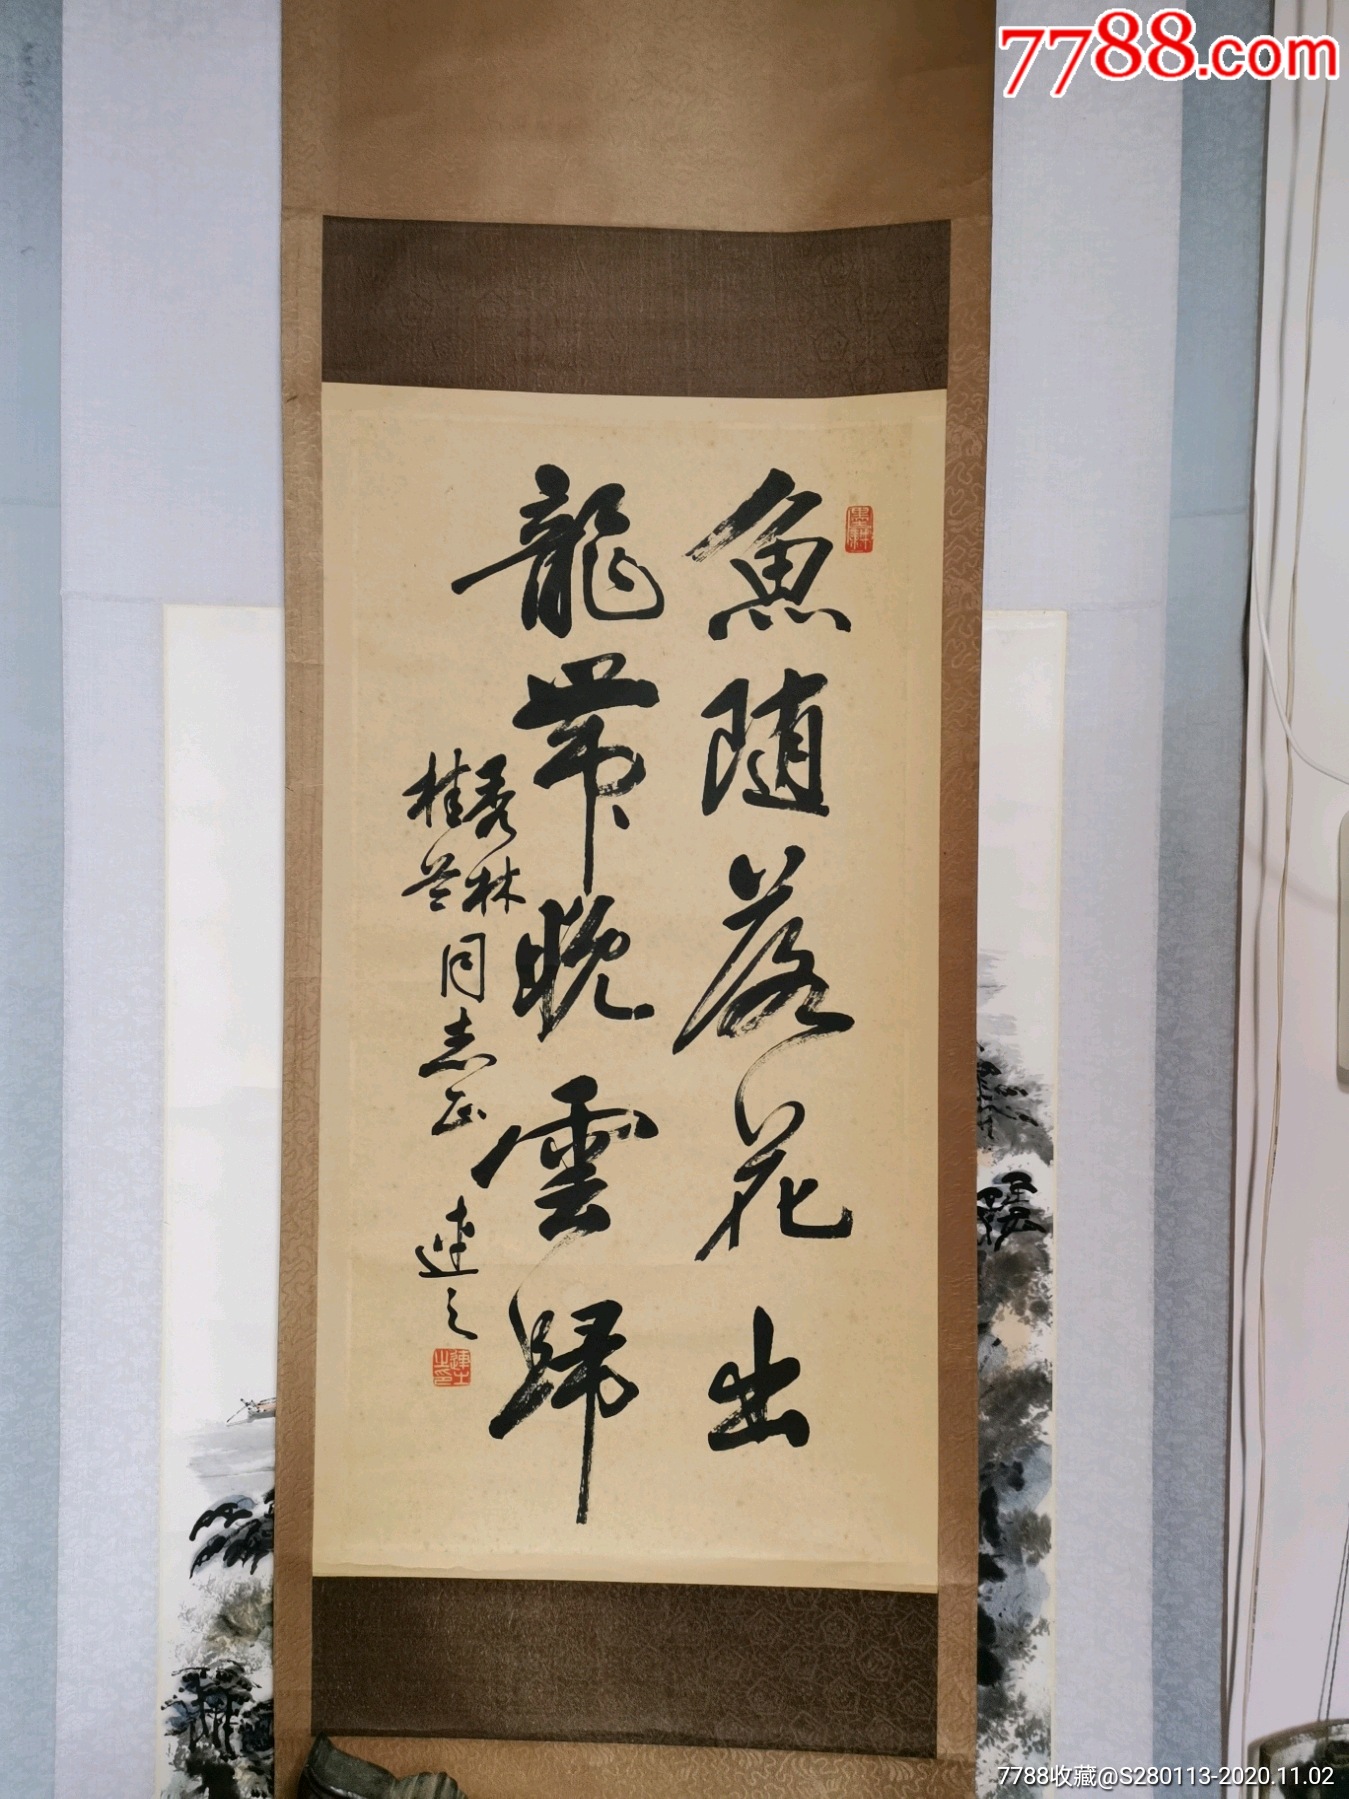 7788.com
魚随落花出
龍帶晚雲歸
秀林
桂兰
同志正
連之
7788收藏@S280113-2020.11.02